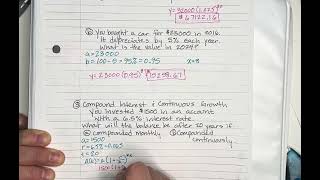 y=32000(1.225)
$67122.16
② You bought a car for $23000 in 2016.
It depreciates by 5% each year.
What is the value in 2024?
a=23000
b=100-5=95%=0.95 x=8
y=23000(0.95)⁸ $15258.67
③ Compound Interest & Continuous Growth
You invested $1500 in an account
with a 6.5% interest rate.
What will the balance be after 20 years if
compounded monthly compounded
continuously.
a=1500
r=6.5%=0.065
t=20